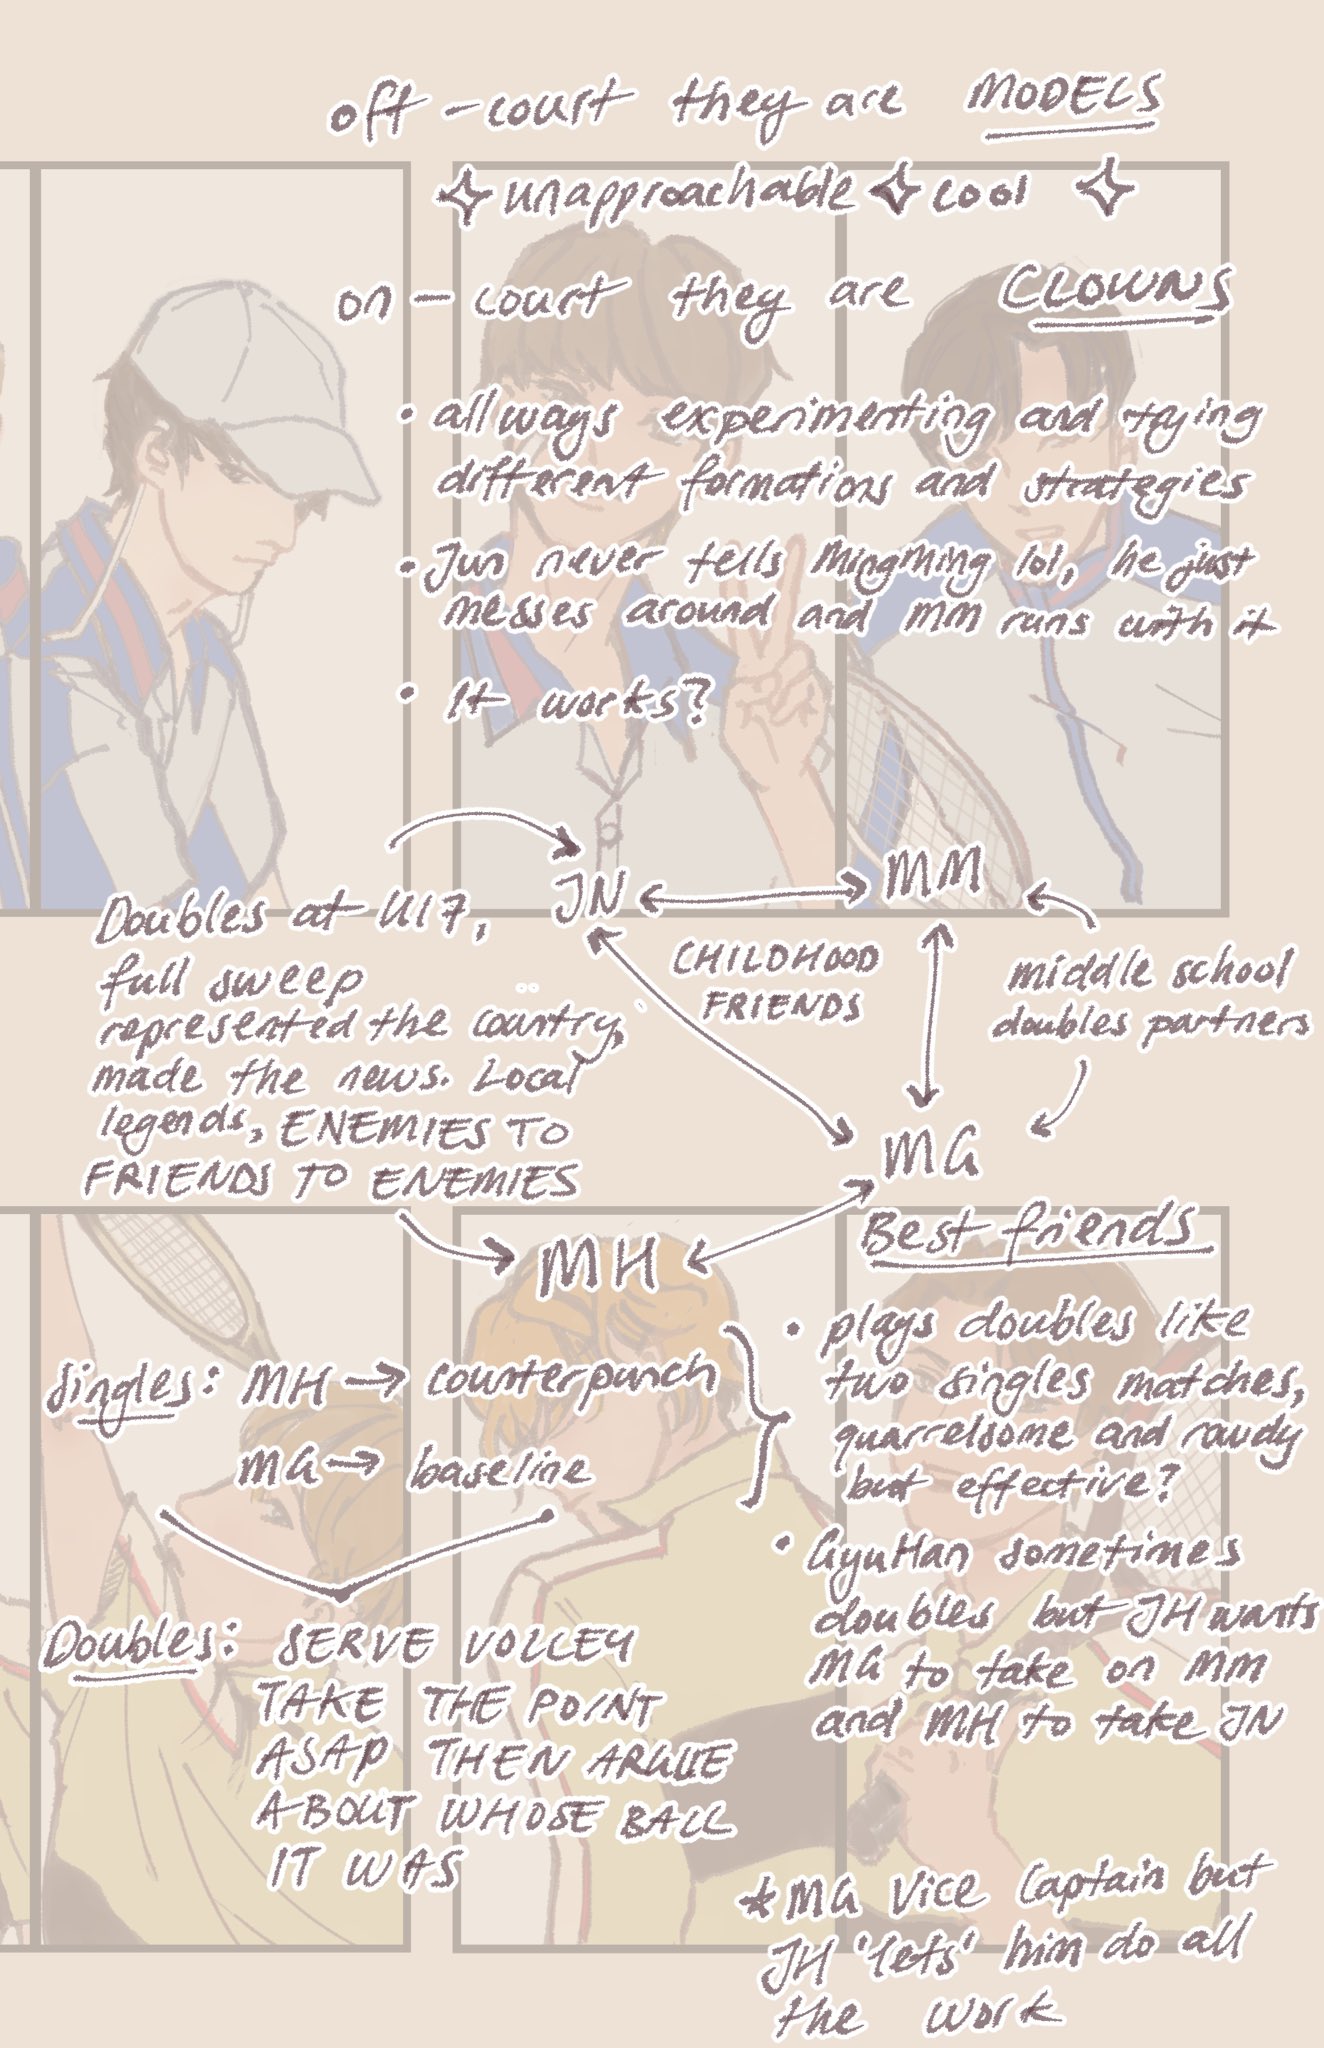 off-court they are MODELS
✧ unapproachable ✧ cool ✧
on-court they are CLOWNS
• allways experimenting and trying
different formations and strategies
• Jun never tells Mingming lol, he just
messes around and MM runs with it
• It works?
JN
MM
Doubles at U17,
full sweep
represented the country,
made the news. Local
legends, ENEMIES TO
FRIENDS TO ENEMIES
CHILDHOOD
FRIENDS
middle school
doubles partners
MG
MH
Best friends
• plays doubles like
two singles matches,
quarrelsome and rowdy
but effective?
• GyuHan sometimes
doubles but JH wants
MG to take on MM
and MH to take JN
Singles: MH → counterpunch
MG → baseline
Doubles: SERVE VOLLEY
TAKE THE POINT
ASAP THEN ARGUE
ABOUT WHOSE BALL
IT WAS
* MG Vice Captain but
JH 'lets' him do all
the work